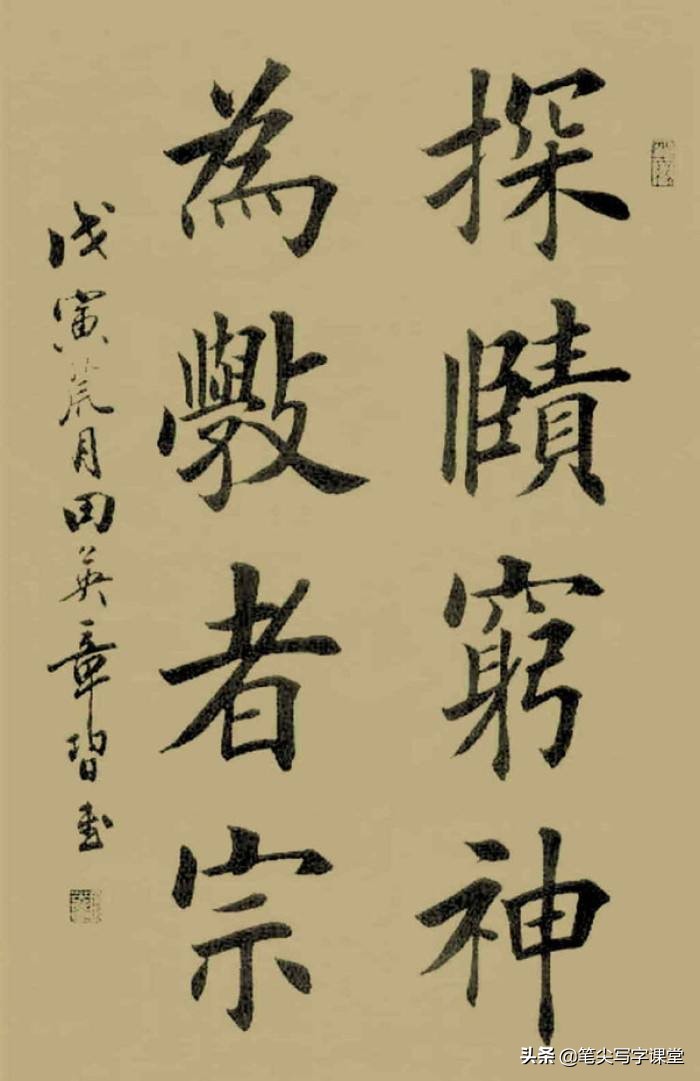 探賾窮神
為斆者宗
戊寅荒月田英章習書
头条 @笔尖写字课堂